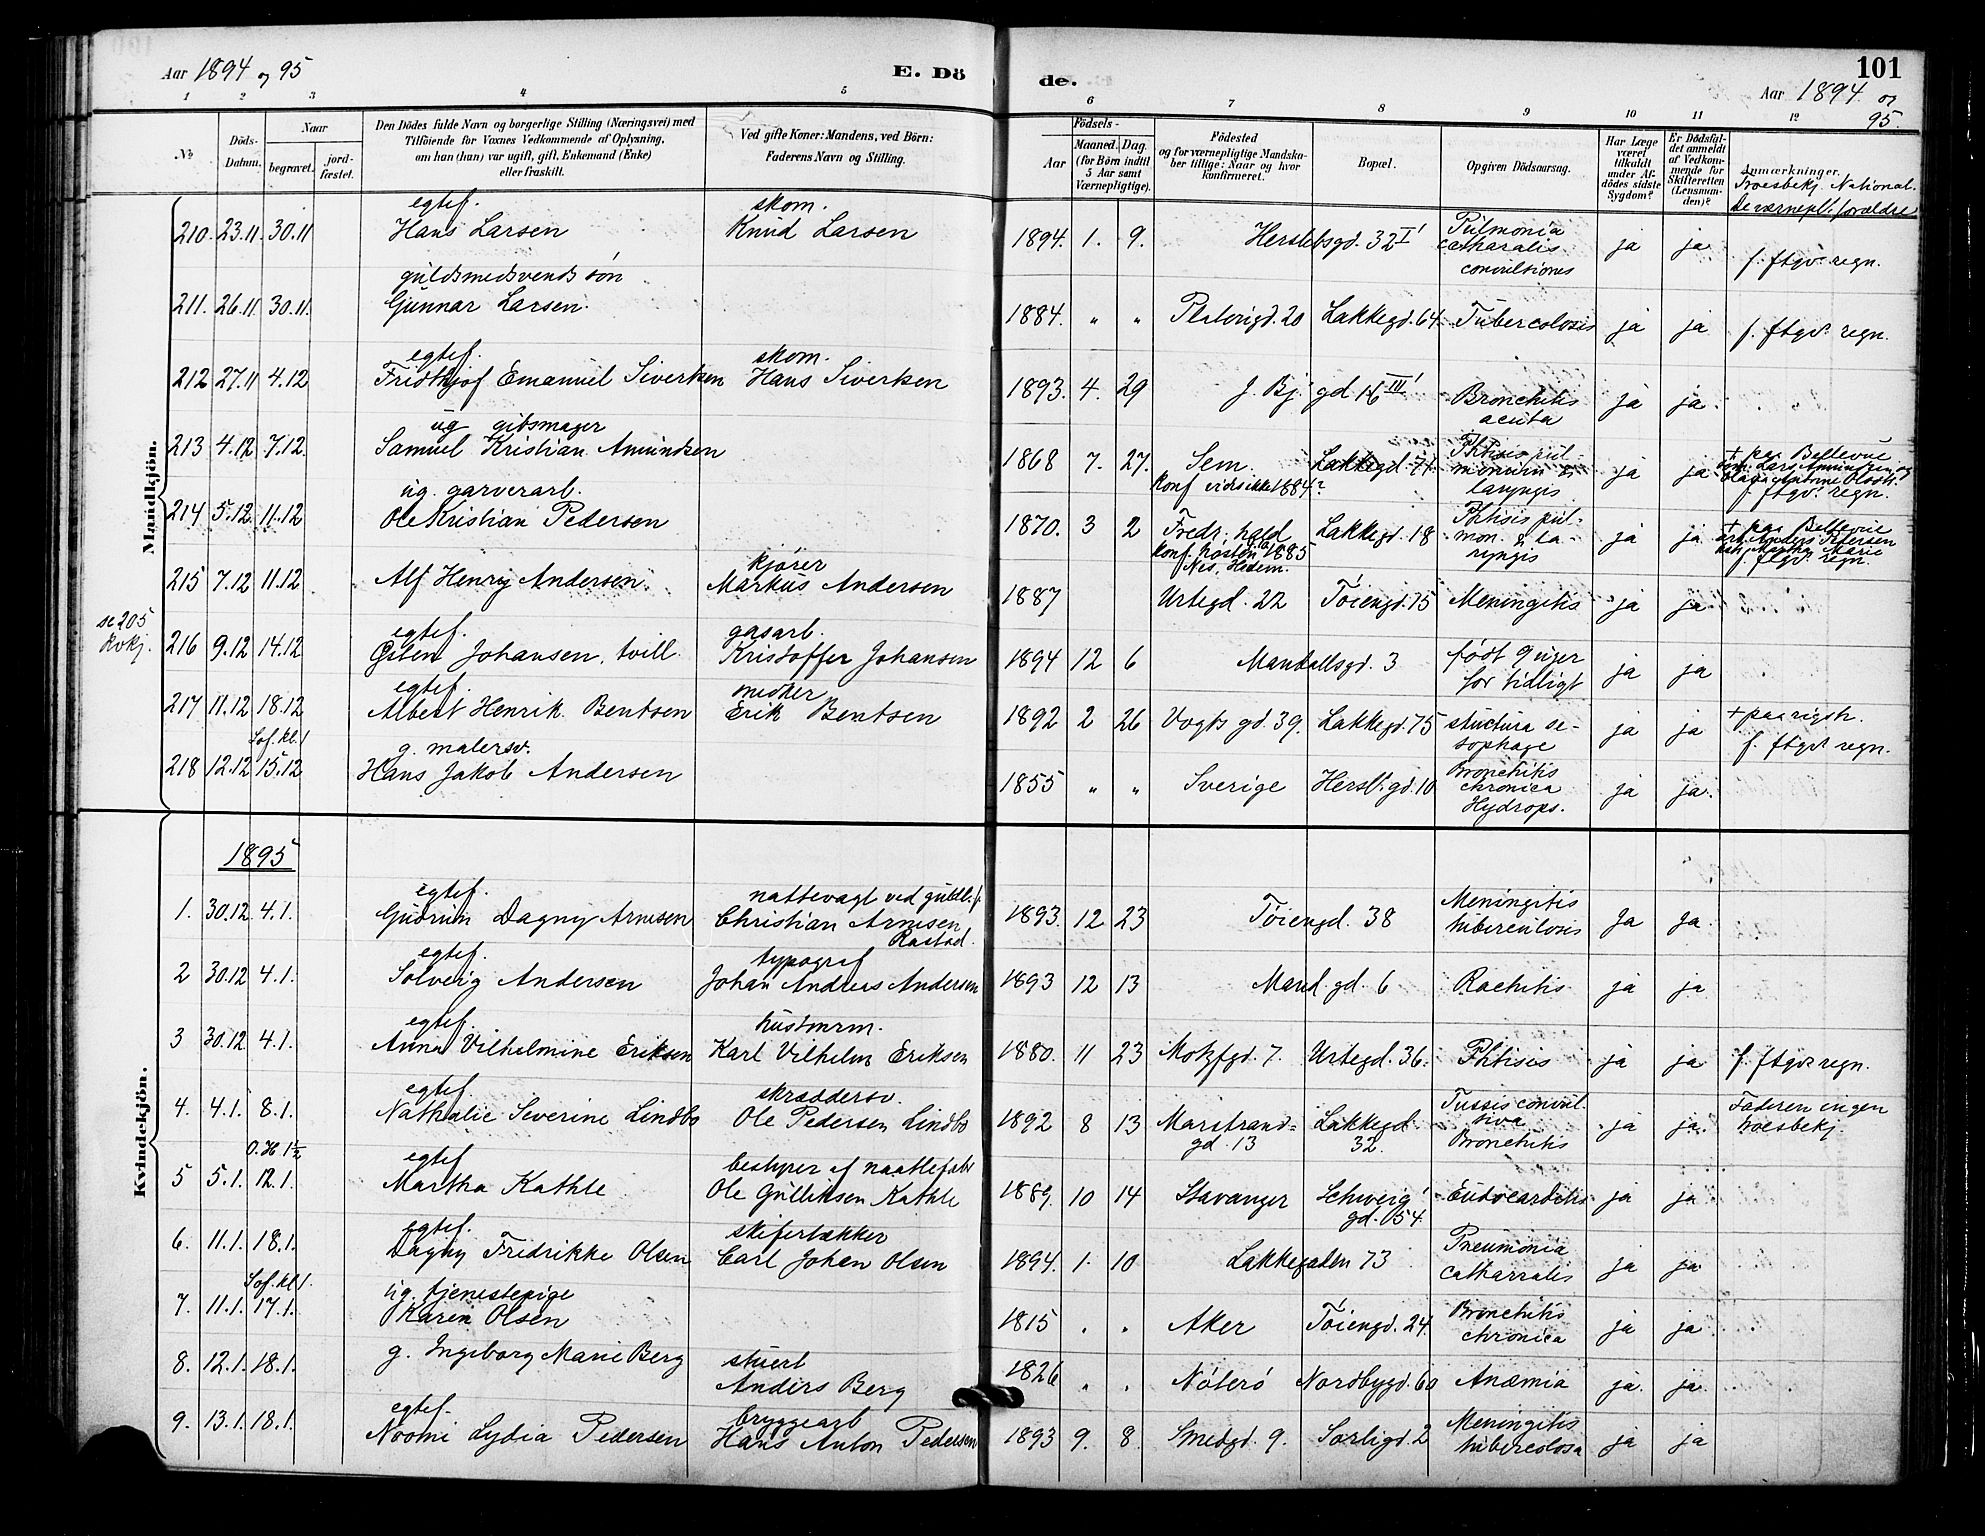 Aar 1894 og 95
E. Dö
de.
101
Aar 1894 og
95.
1 2 3 4 5 6 7 8 9 10 11 12
No
Döds-
Datum.
Naar
begravet.
jord-
fæstet.
Den Dödes fulde Navn og borgerlige Stilling (Næringsvei) med
Tilföiende for Voxnes Vedkommende af Oplysning,
om han (hun) var ugift, gift, Enkemand (Enke)
eller fraskilt.
Ved gifte Koner: Mandens, ved Börn:
Faderens Navn og Stilling.
Födsels-
Aar
Maaned. Dag.
(for Börn indtil
5 Aar samt
Værnepligtige).
Födested
og for værnepligtige Mandska-
ber tillige: Naar og hvor
konfirmeret.
Bopæl.
Opgiven Dödsaarsag.
Har Læge
været
tilkaldt
under Af-
dödes sidste
Sygdom?
Er Dödsfal-
det anmeldt
af Vedkom-
mende for
Skifteretten
(Lensman-
den)?
Anmærkninger.
Troesbekj. National.
De værnepl. forældre
Mandkjön.
egtef. skom.
210. 23.11. 30.11 Hans Larsen Knud Larsen 1894. 1. 9. Herslebsgd. 32 I Pulmonia
catharalis
convulsiones ja ja f. ftgv. regn.
guldsmedsvends sön
211. 26.11. 30.11. Gunnar Larsen. 1884. " " Platougd. 20 Lakkegd. 64. Tubercolosis ja ja f. ftgv. regn.
egtef. skom.
212 27.11 4.12 Fridtjof Emanuel Sivertsen Hans Sivertsen 1893. 4. 29 J. Bj. gd 16 III Bronchitis
acuta ja ja. "
ug gibsmager
213 4.12 7.12. Samuel Kristian Amundsen 1868 7. 27. Sem. Lakkegd. 71. Phtisis pul-
monum &
laryngis ja ja + paa Bellevue
Konf vides ikke 1884?
f. ftgv. regn.
ug. garverarb.
214 5.12 11.12 Ole Kristian Pedersen 1870. 3 2 Fredr. hald Lakkegd. 18 Phtisis pul-
mon. & la-
ryngis ja ja + paa Bellevue
arb. Anders Petersen
Konf. hösten 1885
Nes, Hedem.
f. ftgv. regn.
kjörer
215 7.12 11.12 Alf Henry Andersen. Markus Andersen 1887 Urtegd. 22 Töiengd. 75 Meningitis ja ja
se 205
Kvkj.
egtef. gasarb.
216 9.12 14.12 Östen Johansen, tvill. Kristoffer Johansen 1894 12 6 Mandallsgd. 3 födt 9 uger
for tidligt ja ja
egtef. snedker
217 11.12 18.12 Albert Henrik Bentsen Erik Bentsen 1892 2 26 Vogts gd. 39. Lakkegd. 75 ja ja + paa rigsh.
f. ftgv. regn.
Sof. kl. 1 g. malersv.
218 12.12 15.12 Hans Jakob Andersen 1855 " " Sverige Hersl. gd. 10 Bronchitis
chronica
Hydrops. ja ja.
Kvindekjön.
1895
egtef. nattevagt ved guldl.f.
1. 30.12. 4.1. Gudrun Dagny Arnesen Christian Arnesen
Rastad. 1893. 12 23 Töiengd. 38 Meningitis
tuberculosis ja ja.
egtef. typograf
2 30.12 4.1. Solveig Andersen Johan Andreas Andersen 1893 12 13 Mand. gd. 6 Rachitis ja ja
egtef. hustömrm.
3 30.12 4.1. Anna Vilhelmine Eriksen Karl Vilhelm Eriksen 1880. 11 23 Motzfgd. 7. Urtegd. 36. Phtisis ja ja f. ftgv. regn.
egtef. skræddersv.
4. 4.1. 8.1. Nathalie Severine Lindbo Ole Pedersen Lindbo 1892 8 13 Marstrand=
gd. 13 Lakkegd.
32. Tussis convul-
siva
Bronchitis ja ja. Faderen ingen
troesbekj.
O.H 1½ egtef bestyrer af
5 5.1. 12.1. Martha Kathle Ole Gulliksen Kathle 1889. 10 14 Stavanger Schweig.
gd. 54 Endocarditis ja ja
egtef. skifertækker
6. 11.1. 18.1. Dagny Fredrikke Olsen Carl Johan Olsen 1894. 1. 10 Lakkegaden 73 Pneumonia
catharralis ja ja.
Sof. kl. 1. ug. tjenestepige
7. 11.1. 17.1. Karen Olsen 1815 " " Aker Töiengd. 24. Bronchitis
chronica ja ja
8. 12.1. 18.1. g. Ingeborg Marie Berg stuert
Anders Berg 1826 " " Nöterö Nordbygd. 60 Anæmia ja. ja.
egtef. bryggearb
9. 13.1. 18.1. Noomi Lydia Pedersen Hans Anton Pedersen 1893 9. 8. Smedgd. 9. Sorligd. 2 Meningitis
tubercolosa ja ja